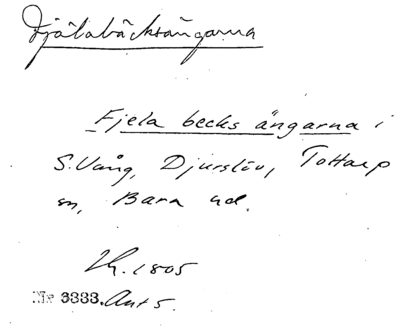 Fjälabäcksängarna
Fjela becks ängarna i
S. Vång, Djurslöv, Tottarp
sn, Bara hd.
Lh. 1805
Nr 3333. Ant 5.